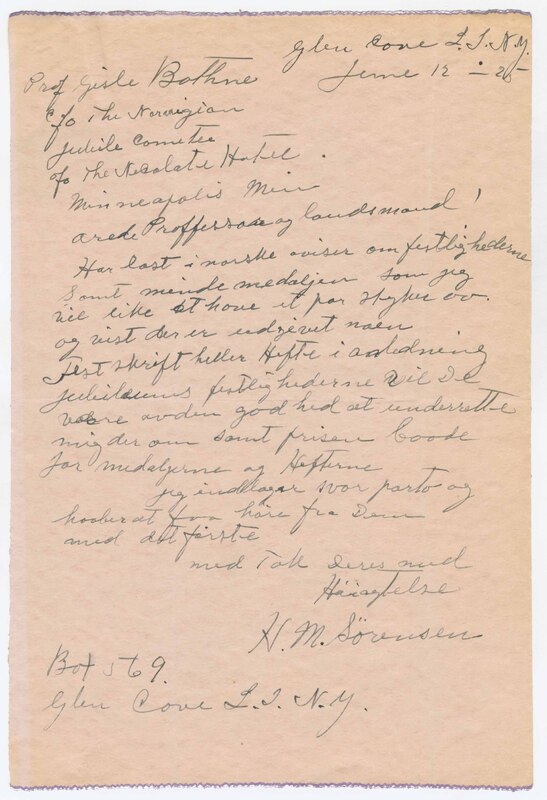 Glen Cove L.I. N.Y.
June 12 - 25
Prof Gisle Bothne
c/o The Norwegian
Jubile Comitee
c/o The Hotel
Minneapolis Min
ærede Proffersor og landsmand!
Har läst i norske aviser om festlighederne
samt minde medaljen som jeg
vil like at have et par stykker av.
og vist der er udgivet noen
Festskrift heller Hefte i anledning
jubilæums festlighederne vil De
være avden godhed at underrette
mig der om samt prisen baade
for medaljerne og Hefterne
jeg indlager svar porto og
haaber at faa höre fra Dem
med det förste
med Tak Deres med
Häigtelse
H. M. Sörensen
Box 569.
Glen Cove L.I. N.Y.